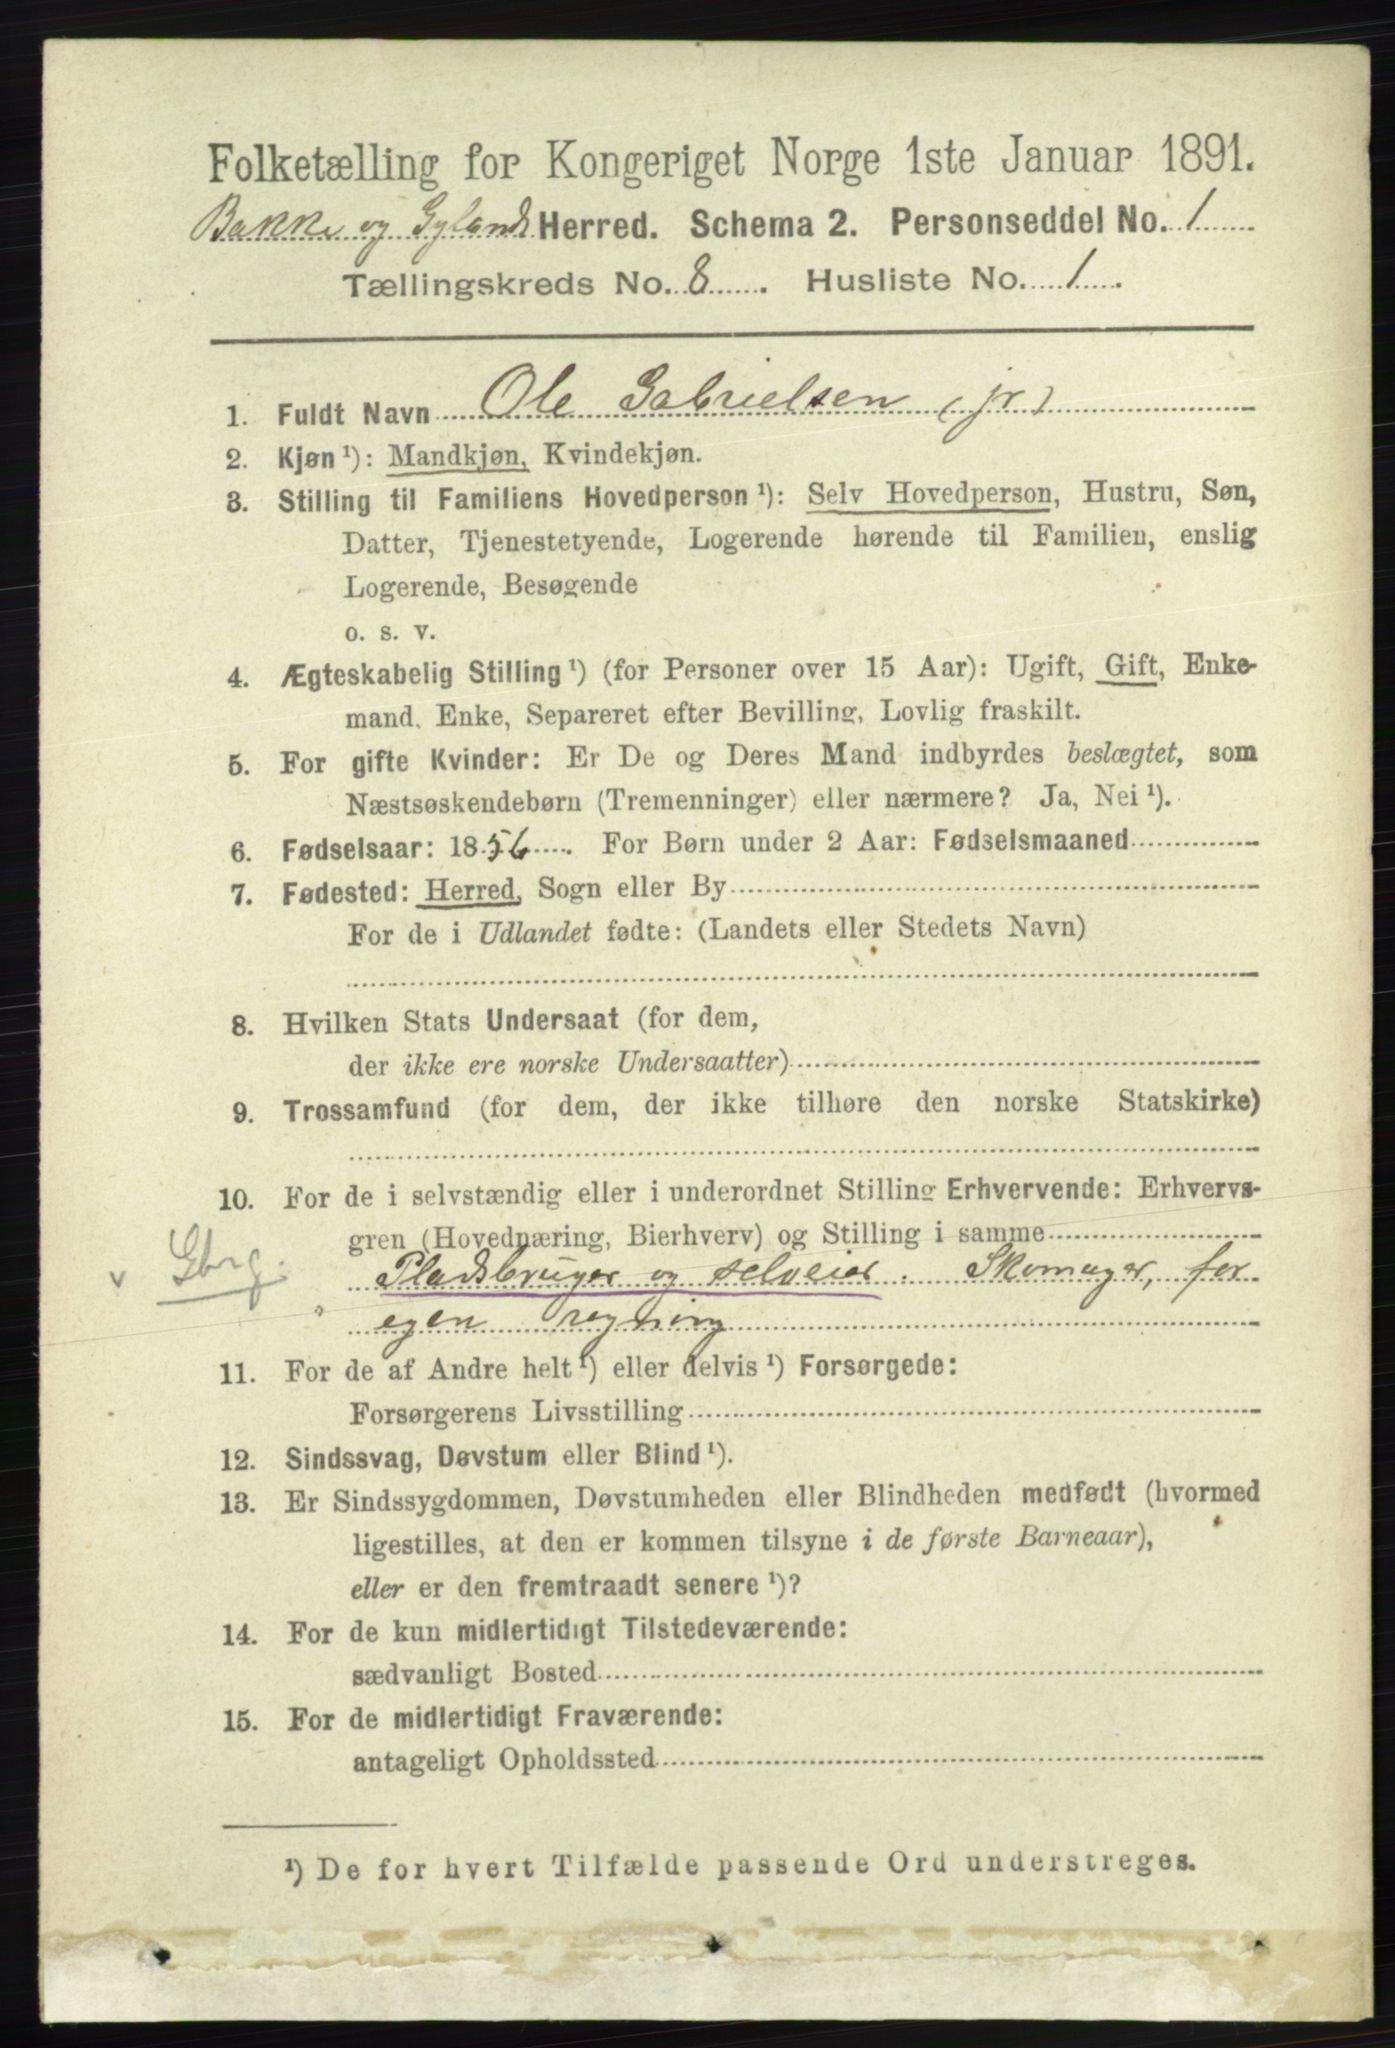 Folketælling for Kongeriget Norge 1ste Januar 1891.
Bakke og Gylands Herred. Schema 2. Personseddel No. 1
Tællingskreds No. 8. Husliste No. 1.
1. Fuldt Navn Ole Gabrielsen (jr)
2. Kjøn ¹): Mandkjøn, Kvindekjøn.
3. Stilling til Familiens Hovedperson ¹): Selv Hovedperson, Hustru, Søn,
Datter, Tjenestetyende, Logerende hørende til Familien, enslig
Logerende, Besøgende
o. s. v.
4. Ægteskabelig Stilling ¹) (for Personer over 15 Aar): Ugift, Gift, Enke-
mand, Enke, Separeret efter Bevilling, Lovlig fraskilt.
5. For gifte Kvinder: Er De og Deres Mand indbyrdes beslægtet, som
Næstsøskendebørn (Tremenninger) eller nærmere? Ja, Nei ¹).
6. Fødselsaar: 1856. For Børn under 2 Aar: Fødselsmaaned
7. Fødested: Herred, Sogn eller By
For de i Udlandet fødte: (Landets eller Stedets Navn)
8. Hvilken Stats Undersaat (for dem,
der ikke ere norske Undersaatter)
9. Trossamfund (for dem, der ikke tilhøre den norske Statskirke)
10. For de i selvstændig eller i underordnet Stilling Erhvervende: Erhvervs-
gren (Hovednæring, Bierhverv) og Stilling i samme
v Gbrg. Pladsbruger og selveier. Skomager, for
" egen regning
11. For de af Andre helt ¹) eller delvis ¹) Forsørgede:
Forsørgerens Livsstilling
12. Sindssvag, Døvstum eller Blind ¹).
13. Er Sindssygdommen, Døvstumheden eller Blindheden medfødt (hvormed
ligestilles, at den er kommen tilsyne i de første Barneaar),
eller er den fremtraadt senere ¹)?
14. For de kun midlertidigt Tilstedeværende:
sædvanligt Bosted
15. For de midlertidigt Fraværende:
antageligt Opholdssted
¹) De for hvert Tilfælde passende Ord understreges.